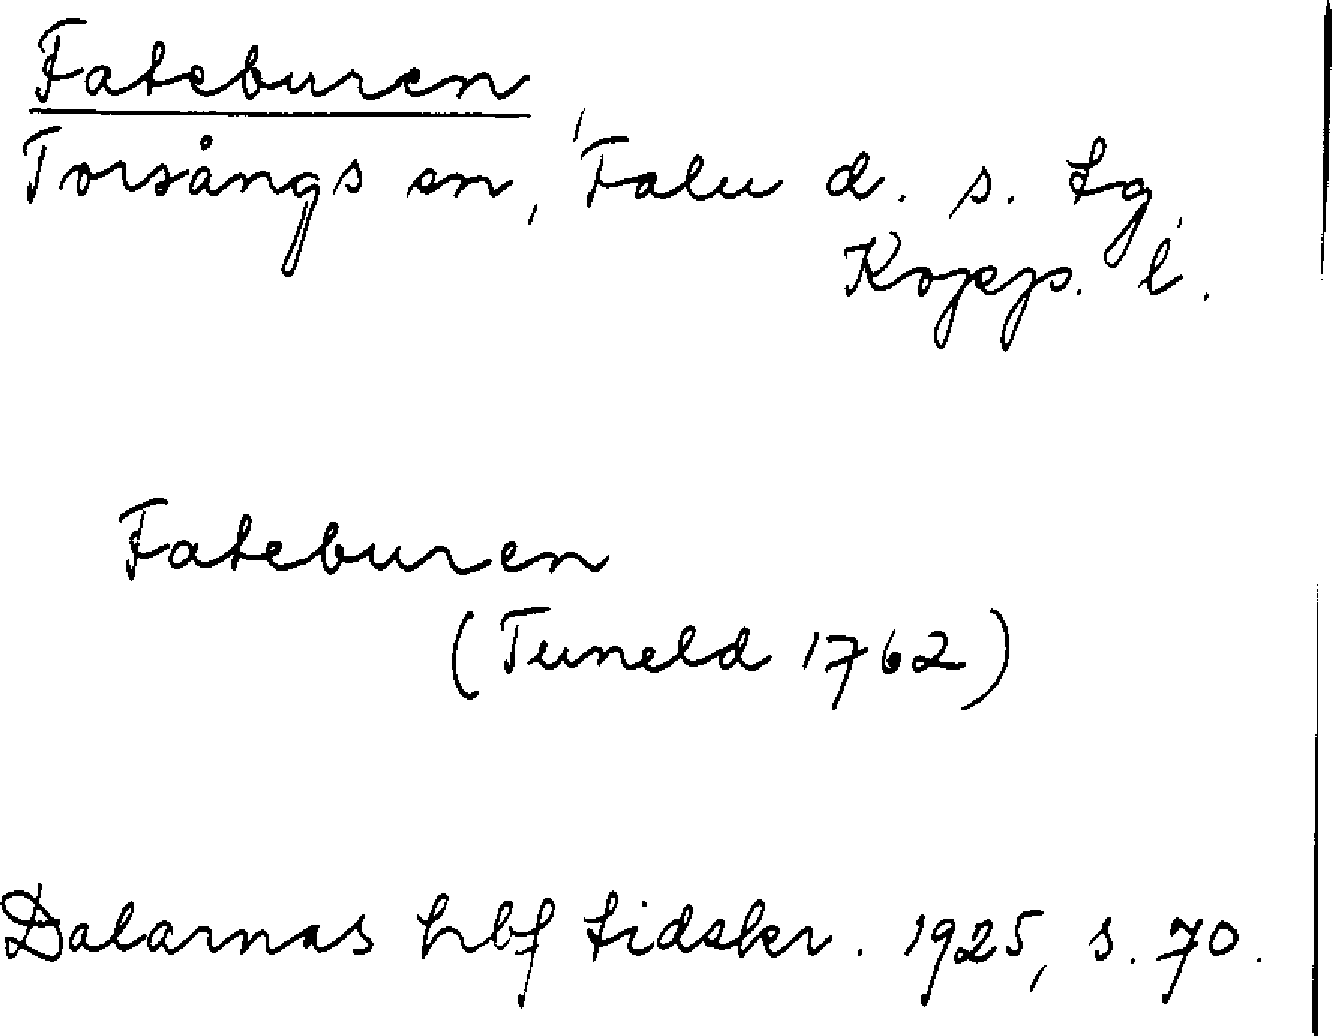 Fateburen
Torsångs sn, Falu d. s. tg,
Kopp. l.
Fateburen
(Tuneld 1762)
Dalarnas hbf tidskr. 1925, s. 70.